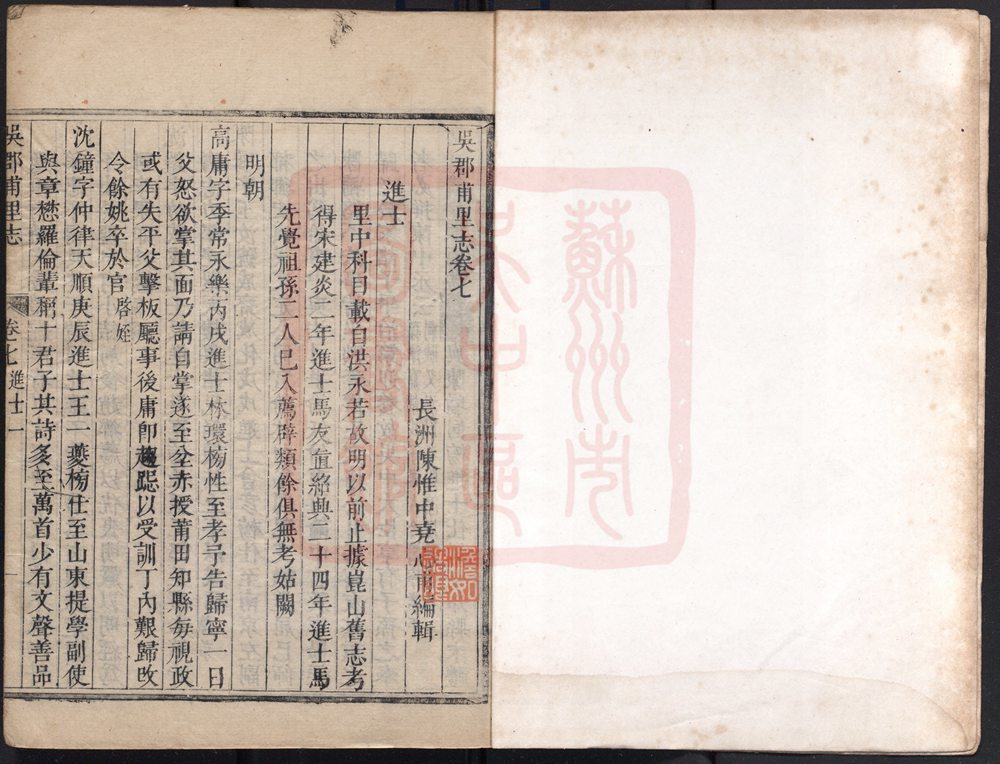 吳郡甫里志卷七
長洲陳惟中堯心甫編輯
進士
里中科目載自洪永若故明以前止據崑山舊志考
得宋建炎二年進士馬友直紹興二十四年進士馬
先覺祖孫二人巳入薦辟類餘俱無考姑闕
明朝
高庸字季常永樂丙戌進士林環榜性至孝予告歸寧一日
父怒欲掌其面乃請自掌遂至坌赤授莆田知縣每視政
或有失平父擊板廳事後庸卽趨跽以受訓丁內艱歸改
令餘姚卒於官啓姪
沈鐘字仲律天順庚辰進士王一夔榜仕至山東提學副使
與章懋羅倫輩稱十君子其詩多至萬首少有文聲善品
吳郡甫里志 卷七進士 一
蘇州市
吳中區